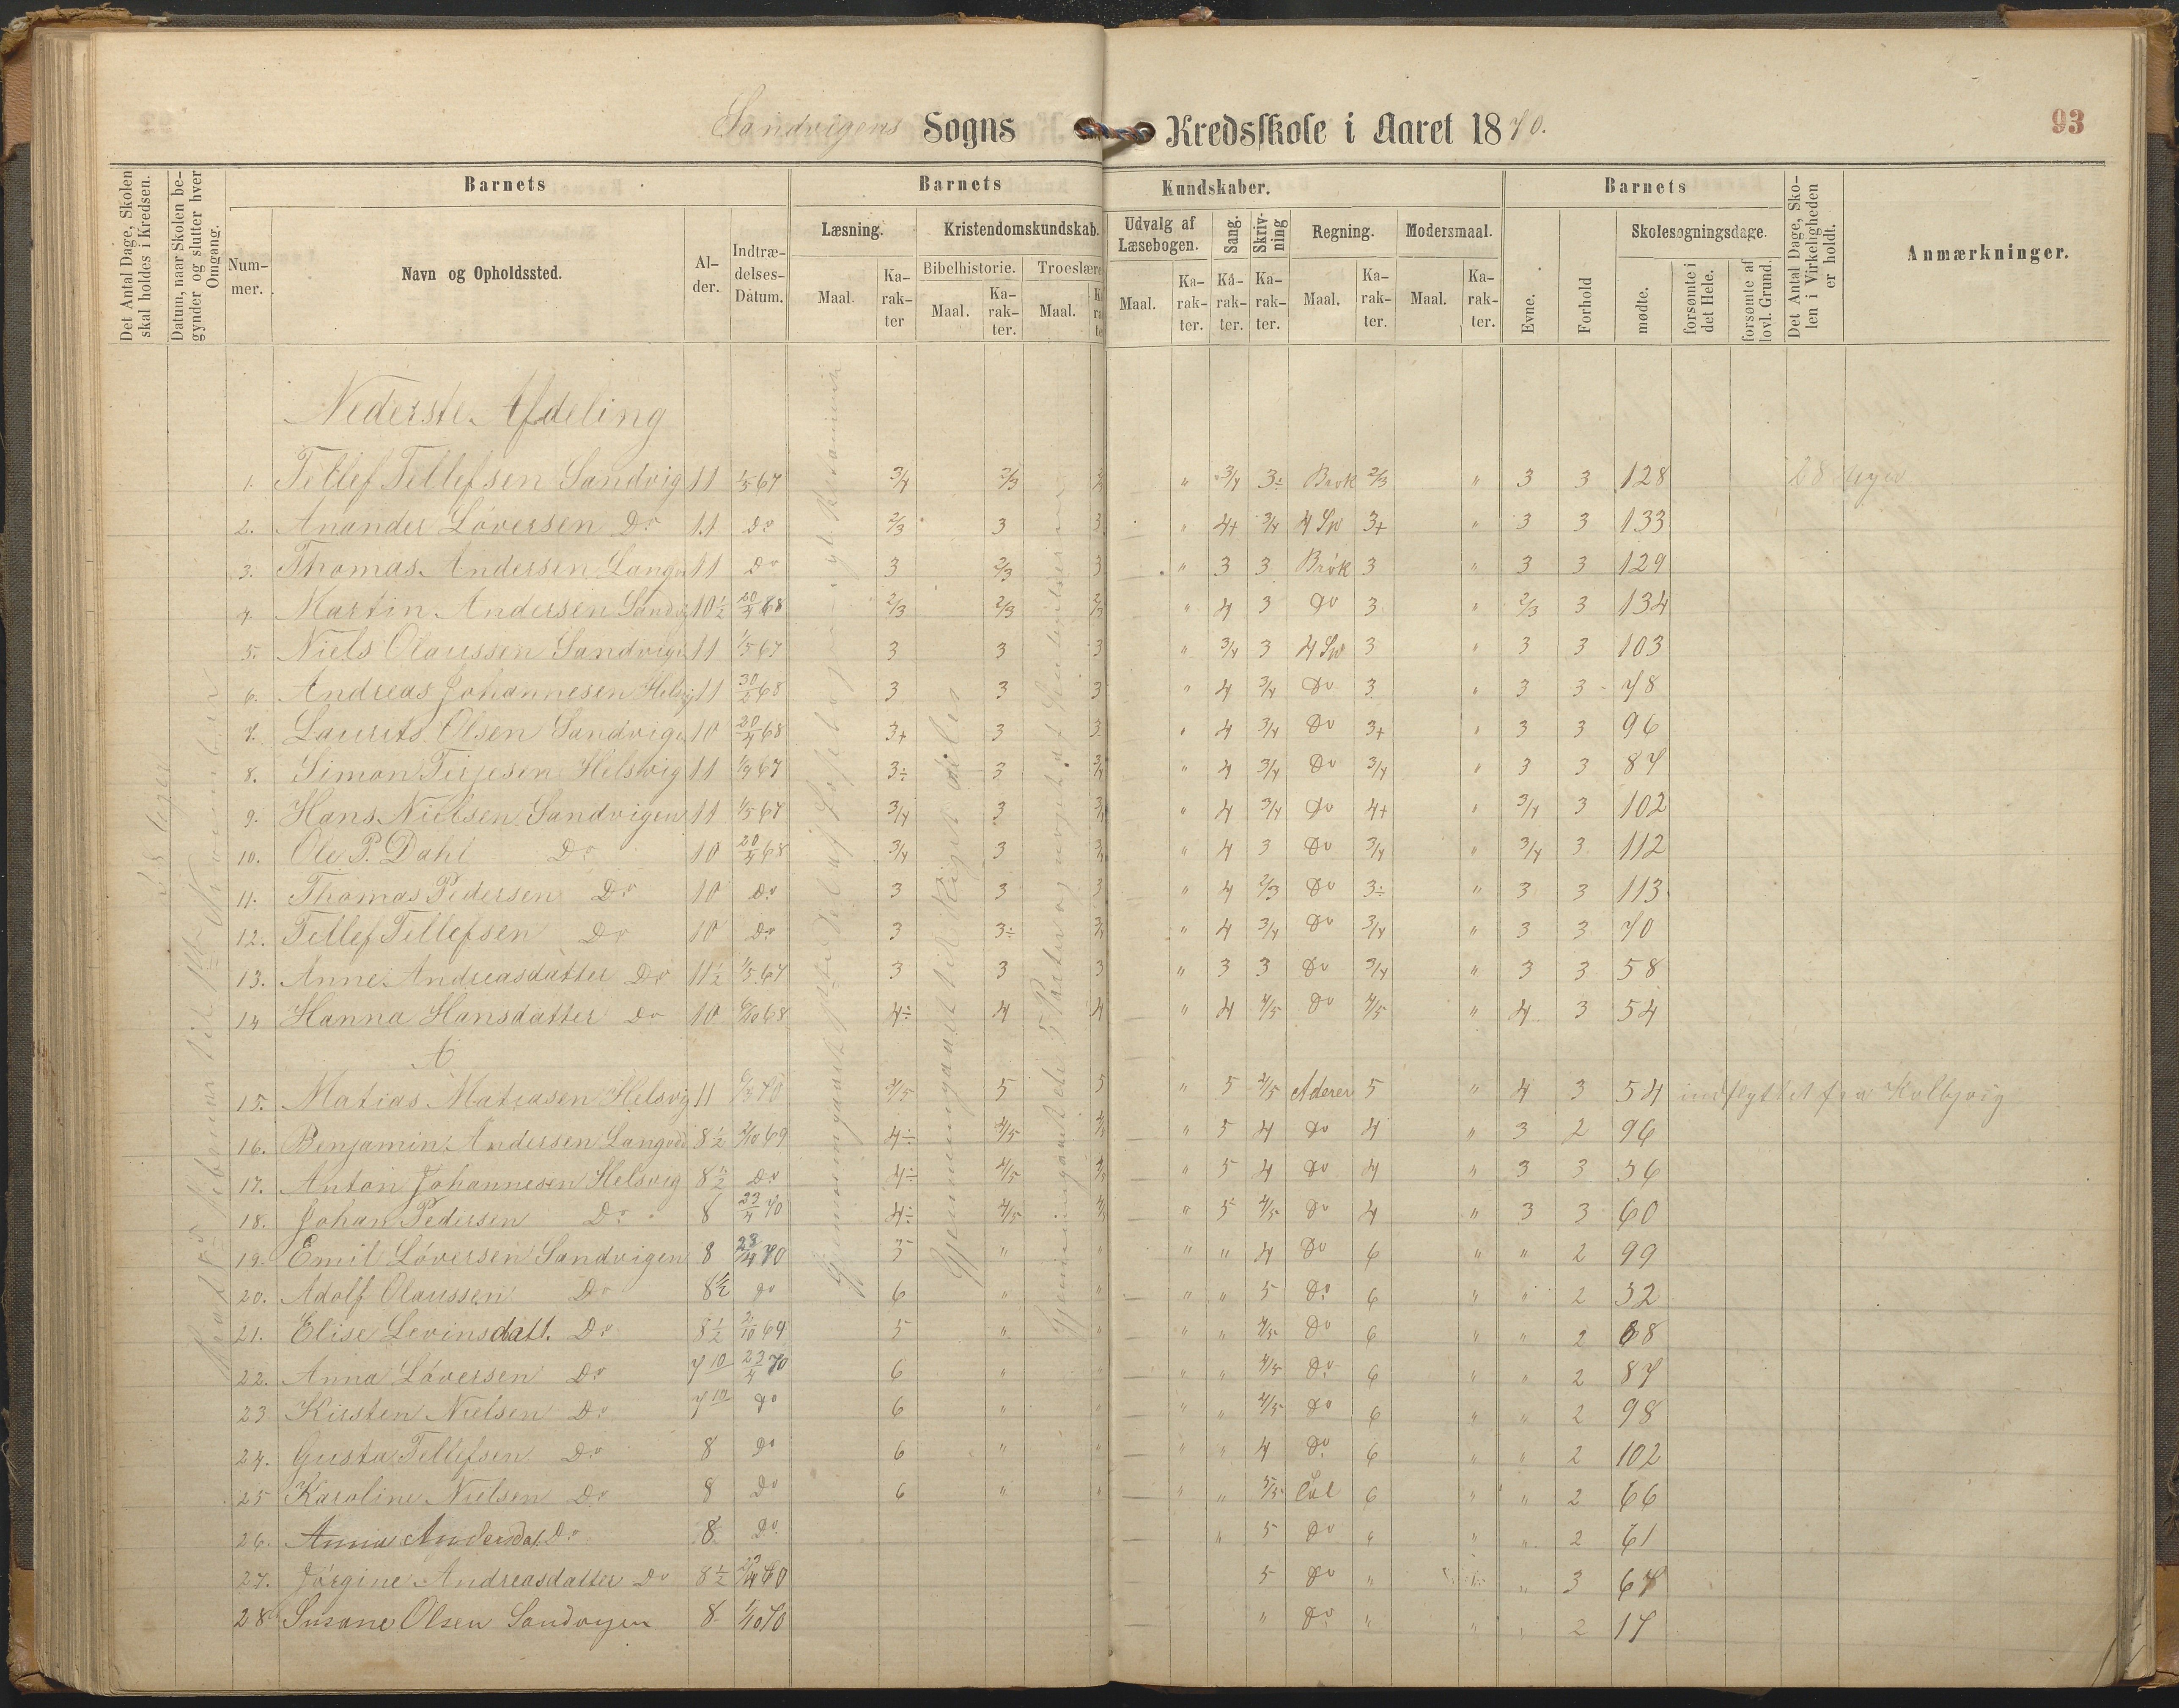 Sandvigens Sogns Kredsskole i Aaret 1870. 93
Det Antal Dage, Skolen skal holdes i Kredsen.
Datum, naar Skolen begynder og slutter hver Omgang.
Barnets Barnets Kundskaber. Barnets
Det Antal Dage, Skolen i Virkeligheden er holdt.
Anmærkninger.
Nummer. Navn og Opholdssted. Alder. Indtrædelses-Datum.
Læsning. Kristendomskundskab. Udvalg af Læsebogen. Sang. Skrivning Regning. Modersmaal. Evne. Forhold Skolesøgningsdage.
Bibelhistorie. Troeslære
Maal. Karakter Maal. Karakter. Maal. Maal. Karakter. Karakter. Karakter. Maal. Karakter. Maal. Karakter. mødte. forsømte i det Hele. forsømte af lovl. Grund.
Nederste Afdeling
1. Tellef Tellefsen Sandvig 11 1/5 67 3/4 2/3 " 3/4 3÷ Brøk 2/3 " 3 3 128 28 Uger
2. Anander Løversen Do 11 Do 2/3 3 3 " 4+ 3/4 4 Sp 3+ " 3 3 133
3. Thomas Andersen Lang 11 Do 3 2/3 3 " 3 3 Brøk 3 " 3 3 129
4. Martin Andersen Sandv 10½ 20/4 68 2/3 2/3 2/3 " 4 3 Do 3 " 2/3 3 134
5. Niels Olaussen Sandvig 11 1/5 67 3 3 3 " 3/4 3 4 Sp 3 " 3 3 103
6. Andreas Johannesen Helsvig 11 30/5 68 3 3 3 " 4 3/4 Do 3 " 3 3 78
7. Laurits Olsen Sandvig 10 20/4 68 3+ 3 3 " 4 3/4 Do 3+ " 3 3 96
8. Simon Terjesen Helsvig 11 67 3÷ 3 3/4 " 4 3/4 Do 3/4 " 3 3 87
9. Hans Nielsen Sandvigen 11 1/5 67 3/4 3 3/4 " 4 3/4 Do 4+ " 3/4 3 102
10. Ole P. Dahl Do 10 20/4 68 3/4 3 3/4 " 4 3 Do 3/4 " 3/4 3 112
11. Thomas Pedersen Do 10 Do 3 3 3 " 4 2/3 Do 3÷ " 3 3 113
12. Tellef Tellefsen Do 10 Do 3 3÷ 3/4 " 4 3/4 Do 3/4 " 3 3 70
13. Anne Andreasdatter Do 11½ 1/5 67 3 3 3 " 3 3 Do 3/4 " 3 3 58
14 Hanna Hansdatter Do 10 6/10 68 4÷ 4 4 " 4 4/5 Do 4/5 " 4 3 54
15. Matias Matiasen Helsvig 11 70 4/5 5 5 " 5 4/5 Aderer 5 " 4 3 54 indflyttet fra Kolbjvig
16. Benjamin Andersen 8½ 2/10 69 4÷ 4/5 4/5 " 5 4 Do 4 " 3 2 96
17. Anton Johannesen Helsvig 8½ Do 4÷ 4/5 4/5 " 5 4 Do 4 " 3 3 56
18. Johan Pedersen Do 8 23/4 70 4÷ 4/5 4/5 " 5 4/5 Do 4 " 3 3 60
19. Emil Løversen Sandvigen 8 23/4 70 5 " " " " 4 Do 6 " " 2 99
20. Adolf Olaussen Do 8½ Do 6 " " " " 5 Do 6 " " 2 32
21. Elise Levinsdatt. Do 8½ 2/10 69 5 " " " " 4/5 Do 6 " " 2 68
22. Anna Løversen Do 7 10 23/4 70 6 " " " " 4/5 Do 6 " " 2 87
23 Kirsten Nielsen Do 7 10 Do 6 " " " " 4/5 Do 6 " " 2 98
24. Gusta Tellefsen Do 8 Do 6 " " " " 4 Do 6 " " 2 102
25 Karoline Nielsen Do 8 Do 6 " " " " 6 " " 2 66
26. Anna Andersdat. Do 8 Do " 5 Do " " " 2 61
27. Jørgine Andreasdatter Do 8½ 23/4 70 5 Do " " 3 67
28 Susane Olsen Sandvigen 8 1/10 70 " Do " " " 2 17
28 Uger
Fra 28 Februar til November
Gjennemgaaet
Gjennemgaaet til Riget deles
Gjennemgaaet de 5 Parter og noget af